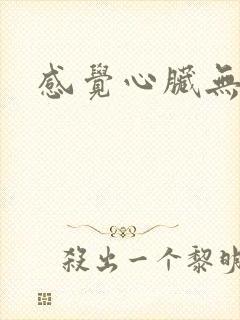 感覺心臟無
殺出一个黎明